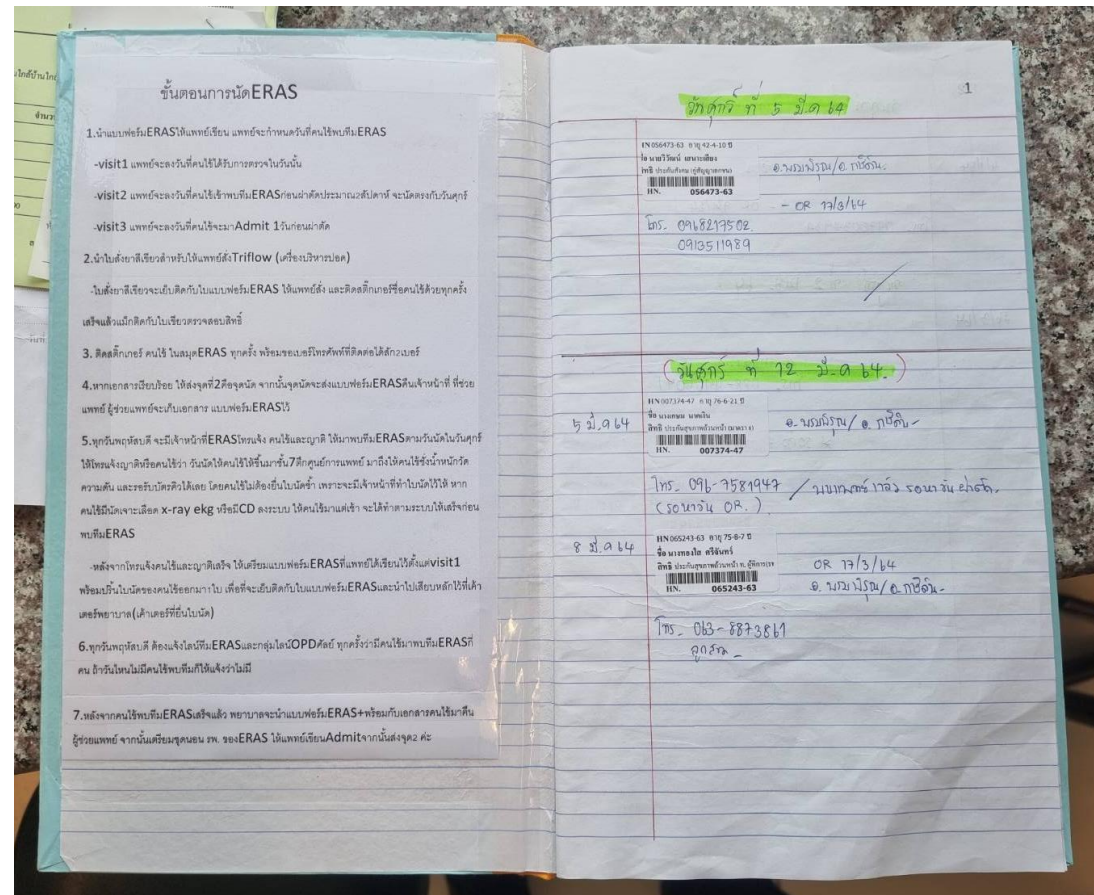 ขั้นตอนการนัดERAS
1.นำแบบฟอร์มERASให้แพทย์เขียน แพทย์จะกำหนดวันที่คนไข้พบทีมERAS
-visit1 แพทย์จะลงวันที่คนไข้ได้รับการตรวจในวันนั้น
-visit2 แพทย์จะลงวันที่คนไข้เข้าพบทีมERASก่อนผ่าตัดประมาณ2สัปดาห์ จะนัดตรงกับวันศุกร์
-visit3 แพทย์จะลงวันที่คนไข้จะมาAdmit 1วันก่อนผ่าตัด
2.นำใบสั่งยาสีเขียวสำหรับให้แพทย์สั่งTriflow (เครื่องบริหารปอด)
-ใบสั่งยาสีเขียวจะเย็บติดกับใบแบบฟอร์มERAS ให้แพทย์สั่ง และติดสติ๊กเกอร์ชื่อคนไข้ด้วยทุกครั้ง
เสร็จแล้วแม็กติดกับใบเขียวตรวจสอบสิทธิ์
3. ติดสติ๊กเกอร์ คนไข้ ในสมุดERAS ทุกครั้ง พร้อมขอเบอร์โทรศัพท์ที่ติดต่อได้สัก2เบอร์
4.หากเอกสารเรียบร้อย ให้ส่งจุดที่2คือจุดนัด จากนั้นจุดนัดจะส่งแบบฟอร์มERASคืนเจ้าหน้าที่ ที่ช่วย
แพทย์ ผู้ช่วยแพทย์จะเก็บเอกสาร แบบฟอร์มERASไว้
5.ทุกวันพฤหัสบดี จะมีเจ้าหน้าที่ERASโทรแจ้ง คนไข้และญาติ ให้มาพบทีมERASตามวันนัดในวันศุกร์
ให้โทรแจ้งญาติหรือคนไข้ว่า วันนัดให้คนไข้ให้ขึ้นมาชั้น7ตึกศูนย์การแพทย์ มาถึงให้คนไข้ชั่งน้ำหนักวัด
ความดัน และรอรับบัตรคิวได้เลย โดยคนไข้ไม่ต้องยื่นใบนัดซ้ำ เพราะจะมีเจ้าหน้าที่ทำใบนัดไว้ให้ หาก
คนไข้มีนัดเจาะเลือด x-ray ekg หรือมีCD ลงระบบ ให้คนไข้มาแต่เช้า จะได้ทำตามระบบให้เสร็จก่อน
พบทีมERAS
-หลังจากโทรแจ้งคนไข้และญาติเสร็จ ให้เตรียมแบบฟอร์มERASที่แพทย์ได้เขียนไว้ตั้งแต่visit1
พร้อมปริ้นใบนัดของคนไข้ออกมา1ใบ เพื่อที่จะเย็บติดกับใบแบบฟอร์มERASและนำไปเสียบหลักไว้ที่เค้า
เตอร์พยาบาล(เค้าเตอร์ที่ยื่นใบนัด)
6.ทุกวันพฤหัสบดี ต้องแจ้งไลน์ทีมERASและกลุ่มไลน์OPDศัลย์ ทุกครั้งว่ามีคนไข้มาพบทีมERASกี่
คน ถ้าวันไหนไม่มีคนไข้พบทีมก็ให้แจ้งว่าไม่มี
7.หลังจากคนไข้พบทีมERASเสร็จแล้ว พยาบาลจะนำแบบฟอร์มERAS+พร้อมกับเอกสารคนไข้มาคืน
ผู้ช่วยแพทย์ จากนั้นเตรียมชุดนอน รพ. ของERAS ให้แพทย์เขียนAdmitจากนั้นส่งจุด2 ค่ะ
1
วันศุกร์ ที่ 5 มี.ค 64
HN 056473-63 อายุ 42-4-10 ปี
HN. 056473-63
- OR 17/3/64
โทร. 0968217502
0913511989
(วันศุกร์ ที่ 12 มี.ค 64.)
5 มี.ค 64
HN 007374-47 อายุ 76-6-21 ปี
HN. 007374-47
โทร. 096-7581947 /
(รอหาวัน OR.)
8 มี.ค 64
HN 065243-63 อายุ 75-8-7 ปี
ชื่อ นางทองใส ศรีจันทร์
HN. 065243-63
OR 17/3/64
โทร. 063-8873861